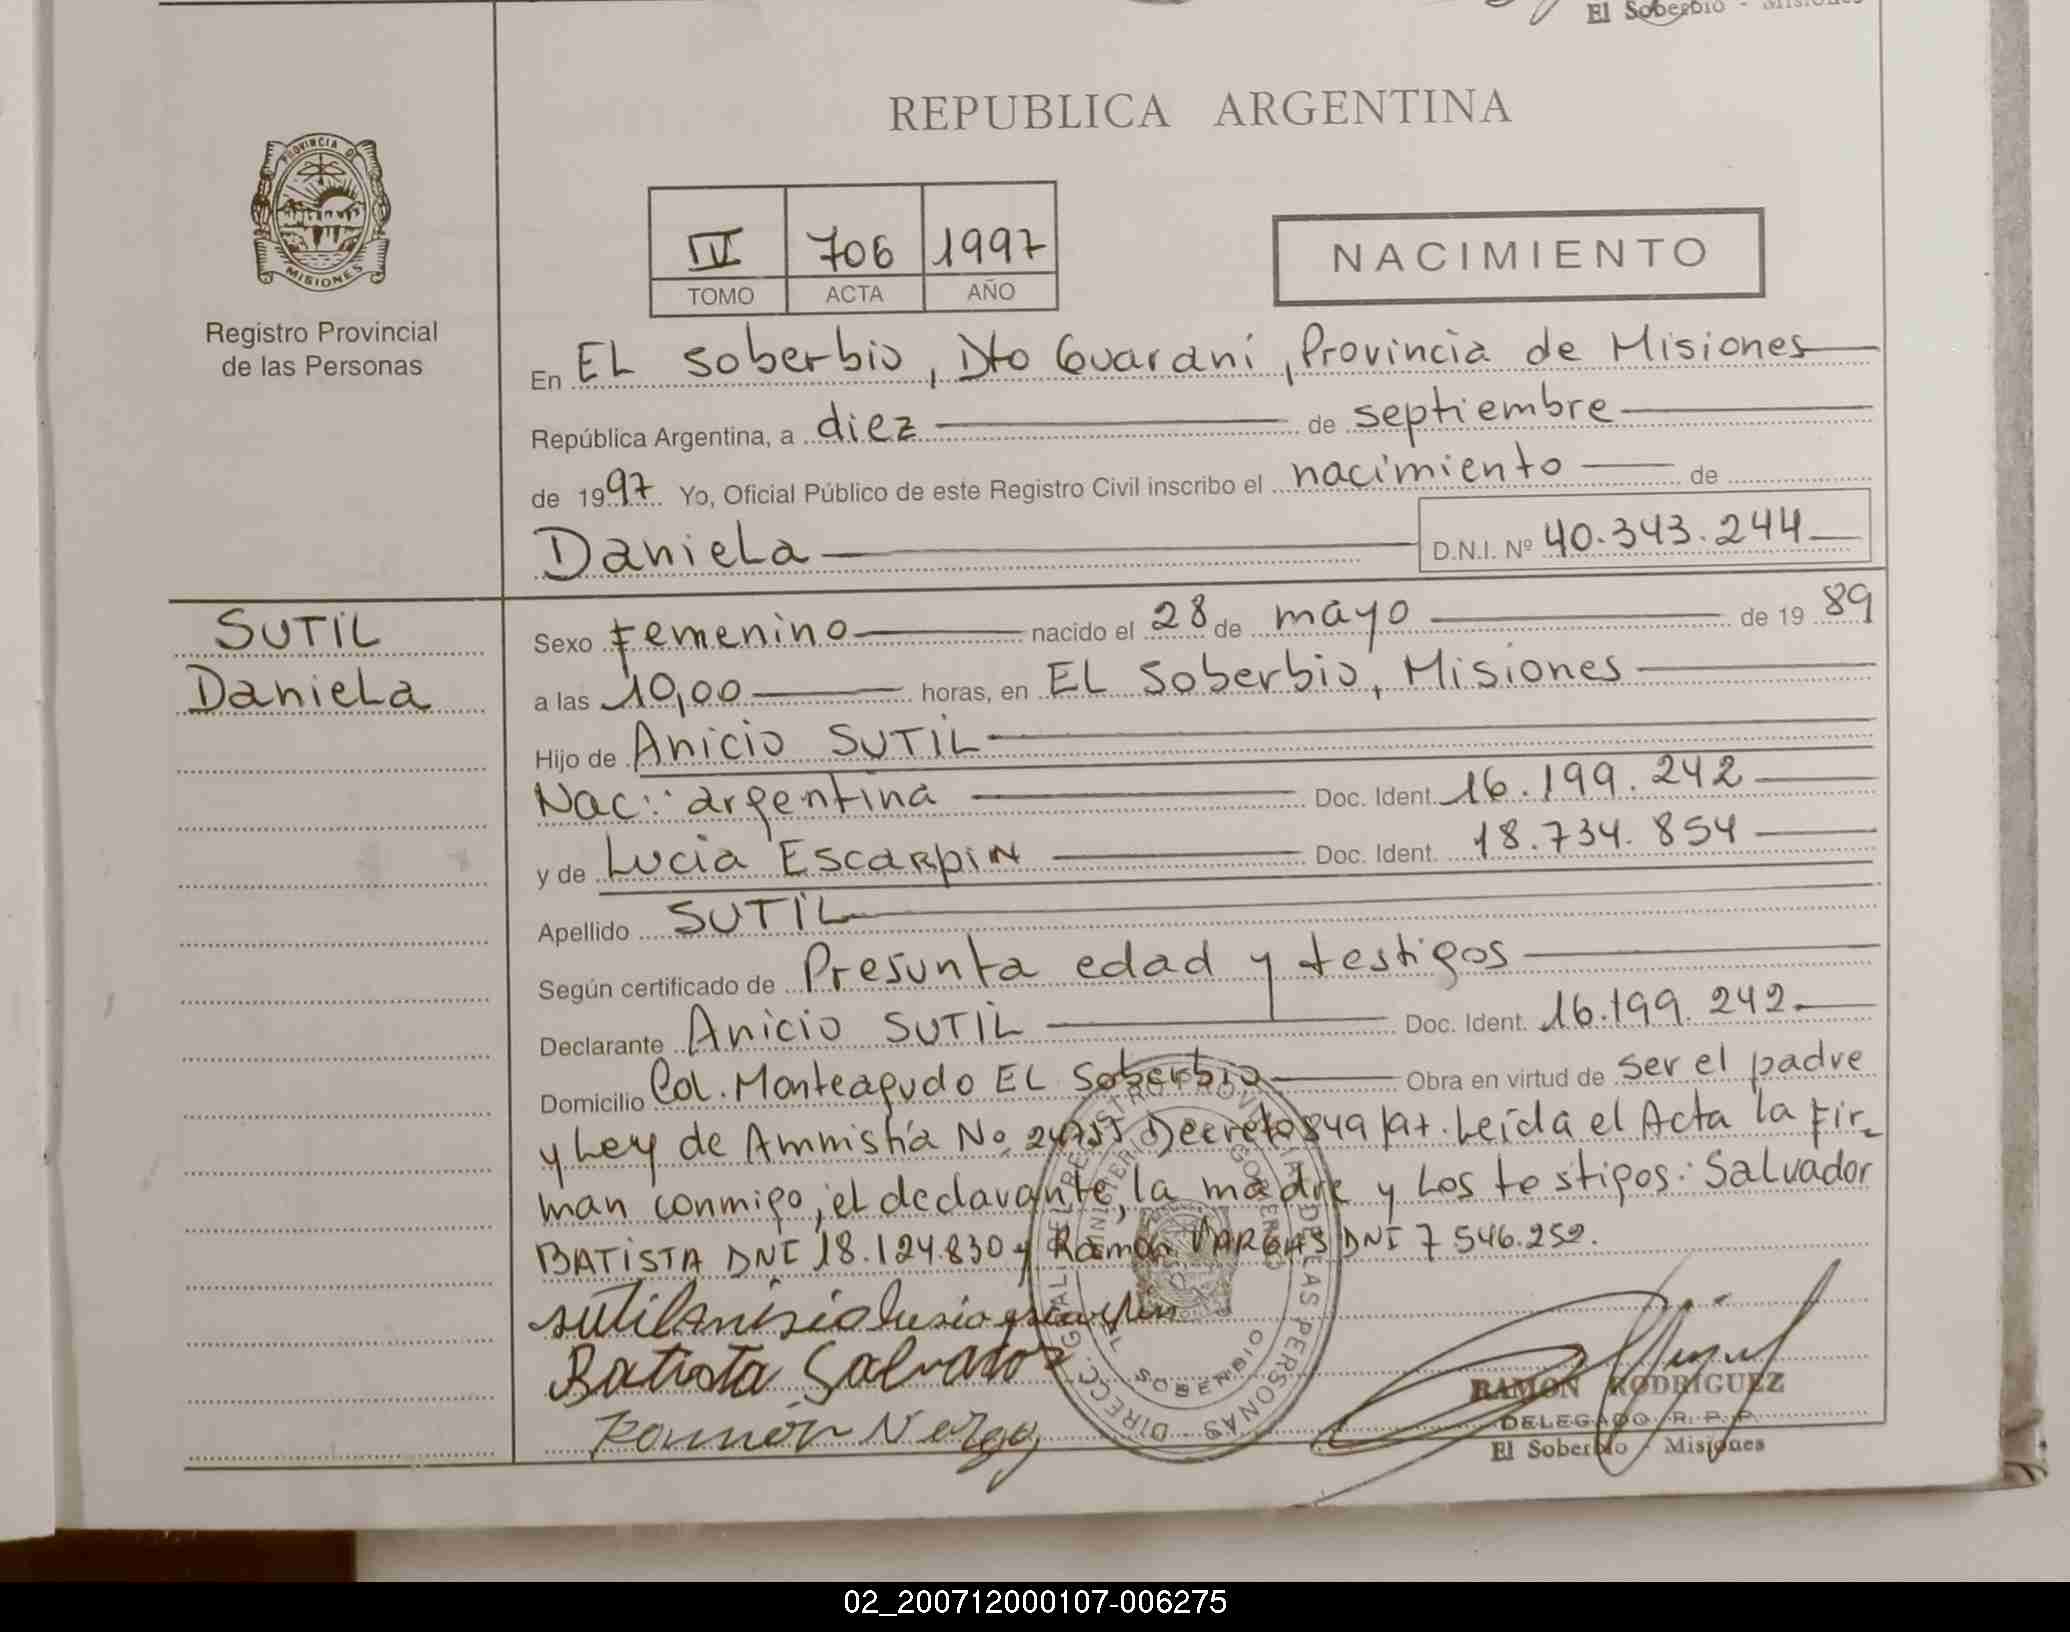 El Soberbio - Misiones
REPUBLICA ARGENTINA
PROVINCIA D MISIONES
Registro Provincial
de las Personas
IV 706 1997
TOMO ACTA AÑO
NACIMIENTO
En EL soberbio, Dto Guaraní, Provincia de Misiones
República Argentina, a diez de septiembre
de 1997 Yo, Oficial Público de este Registro Civil inscribo el nacimiento de
Daniela D.N.I. Nº 40.343.244
SUTIL
Daniela
Sexo Femenino nacido el 28 de mayo de 19 89
a las 10,00 horas, en EL Soberbio, Misiones
Hijo de Anicio SUTIL
Nac: argentina Doc. Ident. 16.199.242
y de Lucia Escarpin Doc. Ident. 18.734.854
Apellido SUTIL
Según certificado de Presunta edad y testigos
Declarante Anicio SUTIL Doc. Ident. 16.199.242
Domicilio Col. Monteagudo EL Soberbio Obra en virtud de ser el padre
y Ley de Amnistía No. 24755 Decreto 849/97. Leída el Acta la fir-
man conmigo, el declarante, la madre y los testigos: Salvador
BATISTA DNI 18.124.830 y Ramon VARGAS DNI 7 546.252.
sutil anisio lusia
Batista Salvador
Ramón
RAMON RODRIGUEZ
DELEGADO R. P. P.
El Soberbio - Misiones
DIRECC. GRAL. DEL REGISTRO PROVINCIAL DE LAS PERSONAS
MINISTERIO GOBIERNO
EL SOBERBIO
02_200712000107-006275